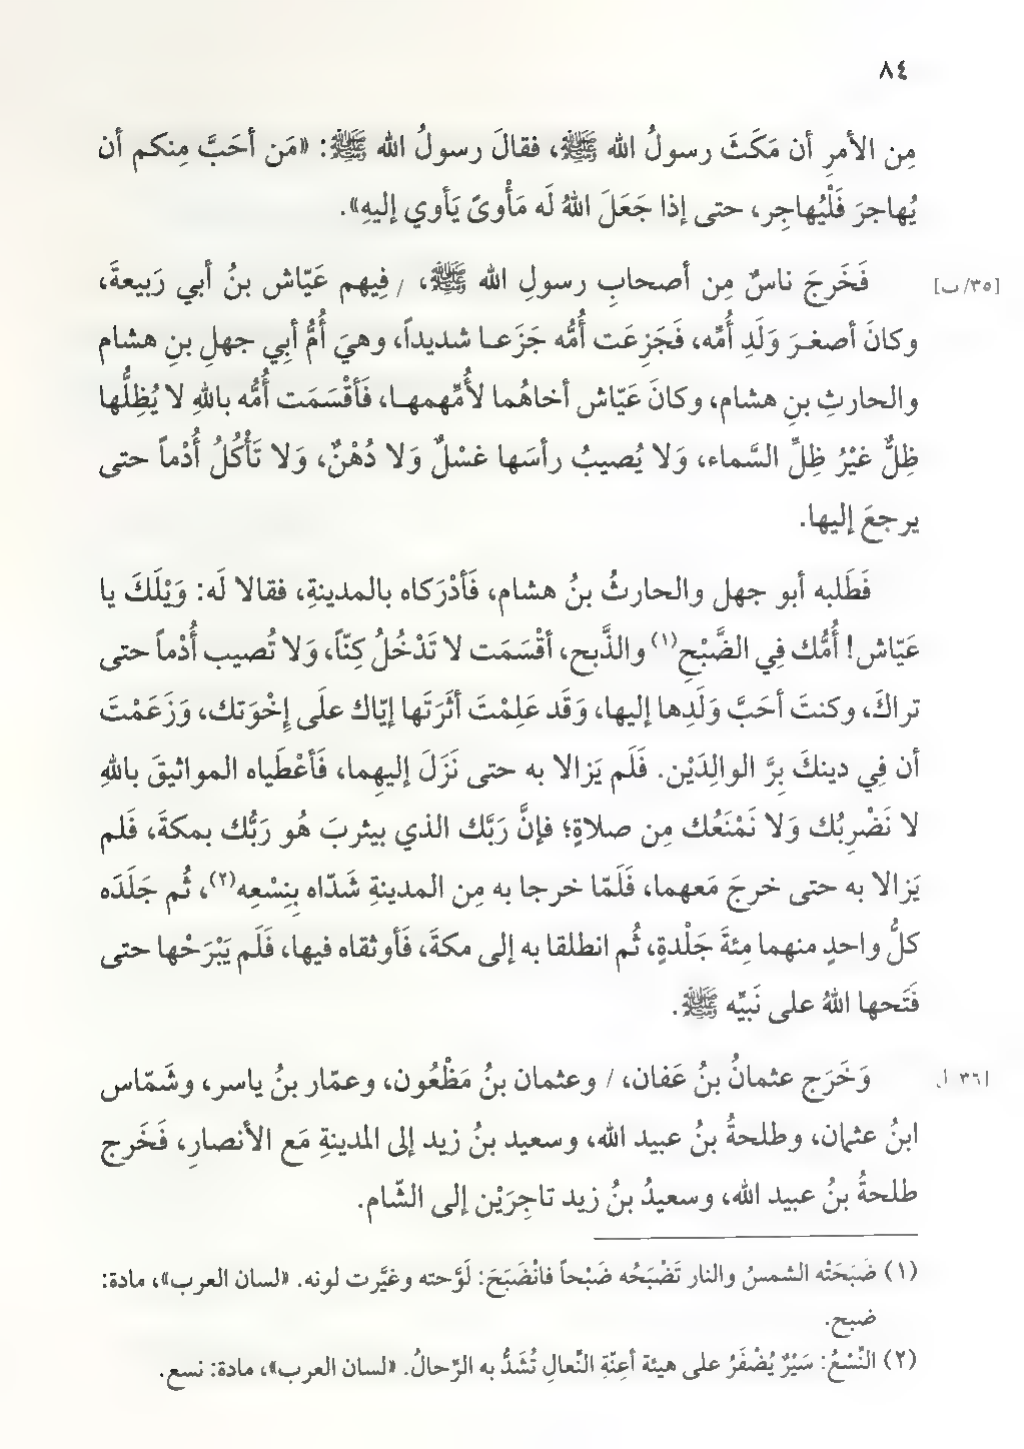 ٨٤
مِن الأمرِ أن مَكَثَ رسولُ الله ﷺ، فقالَ رسولُ الله ﷺ: «مَن أحَبَّ مِنكم أن
يُهاجرَ فَلْيُهاجِر، حتى إذا جَعَلَ اللهُ لَه مَأْوىً يَأوي إليهِ».
[٣٥/ب] فَخَرجَ ناسٌ مِن أصحابِ رسولِ الله ﷺ، / فِيهم عَيّاش بنُ أبي رَبيعةَ،
وكانَ أصغـرَ وَلَدِ أُمِّه، فَجَزِعَت أُمُّه جَزَعـا شديداً، وهيَ أُمُّ أبِي جهلِ بنِ هشام
والحارثِ بنِ هشام، وكانَ عَيّاش أخاهُما لأُمِّهمهـا، فَأقْسَمَت أُمُّه باللهِ لا يُظِلُّها
ظِلٌّ غيْرُ ظِلِّ السَّماء، وَلا يُصيبُ رأسَها غسْلٌ وَلا دُهْنٌ، وَلا تَأْكُلُ أُدْماً حتى
يرجعَ إليها.
فَطَلبه أبو جهل والحارثُ بنُ هشام، فَأدْرَكاه بالمدينةِ، فقالا لَه: وَيْلَكَ يا
عَيّاش! أُمُّك فِي الضَّبْحِ(١) والذَّبح، أقْسَمَت لا تَدْخُلُ كِنّاً، وَلا تُصيب أُدْماً حتى
تراكَ، وكنتَ أحَبَّ وَلَدِها إليها، وَقَد عَلِمْتَ أثَرَتَها إيّاك علَى إِخْوَتك، وَزَعَمْتَ
أن فِي دينكَ بِرَّ الوالِدَيْن. فَلَم يَزالا به حتى نَزَلَ إليهِما، فَأعْطَياه المواثيقَ باللهِ
لا نَضْرِبُك وَلا نَمْنَعُك مِن صلاةٍ؛ فإنَّ رَبَّك الذي بيثربَ هُو رَبُّك بمكةَ، فَلم
يَزالا به حتى خرجَ مَعهما، فَلَمّا خرجا به مِن المدينةِ شَدّاه بِنِسْعِه(٢)، ثُم جَلَدَه
كلُّ واحدٍ منهما مِئةَ جَلْدةٍ، ثُم انطلقا به إلى مكةَ، فَأوثقاه فيها، فَلَم يَبْرَحْها حتى
فَتَحها اللهُ على نَبيِّه ﷺ.
وَخَرَج عثمانُ بنُ عَفان، / وعثمان بنُ مَظْعُون، وعمّار بنُ ياسر، وشَمّاس
ابنُ عثمان، وطلحةُ بنُ عبيد الله، وسعيد بنُ زيد إلى المدينةِ مَع الأنصارِ، فَخَرج
طلحةُ بنُ عبيد الله، وسعيدُ بنُ زيد تاجِرَيْن إلى الشّام.
(١) ضَبَحَتْه الشمسُ والنار تَضْبَحُه ضَبْحاً فانْضَبَحَ: لَوَّحته وغيَّرت لونه. «لسان العرب»، مادة:
ضبح.
(٢) النِّسْعُ: سَيْرٌ يُضْفَرُ على هيئة أعِنّةِ النِّعالِ تُشَدُّ به الرِّحالُ. «لسان العرب»، مادة: نسع.